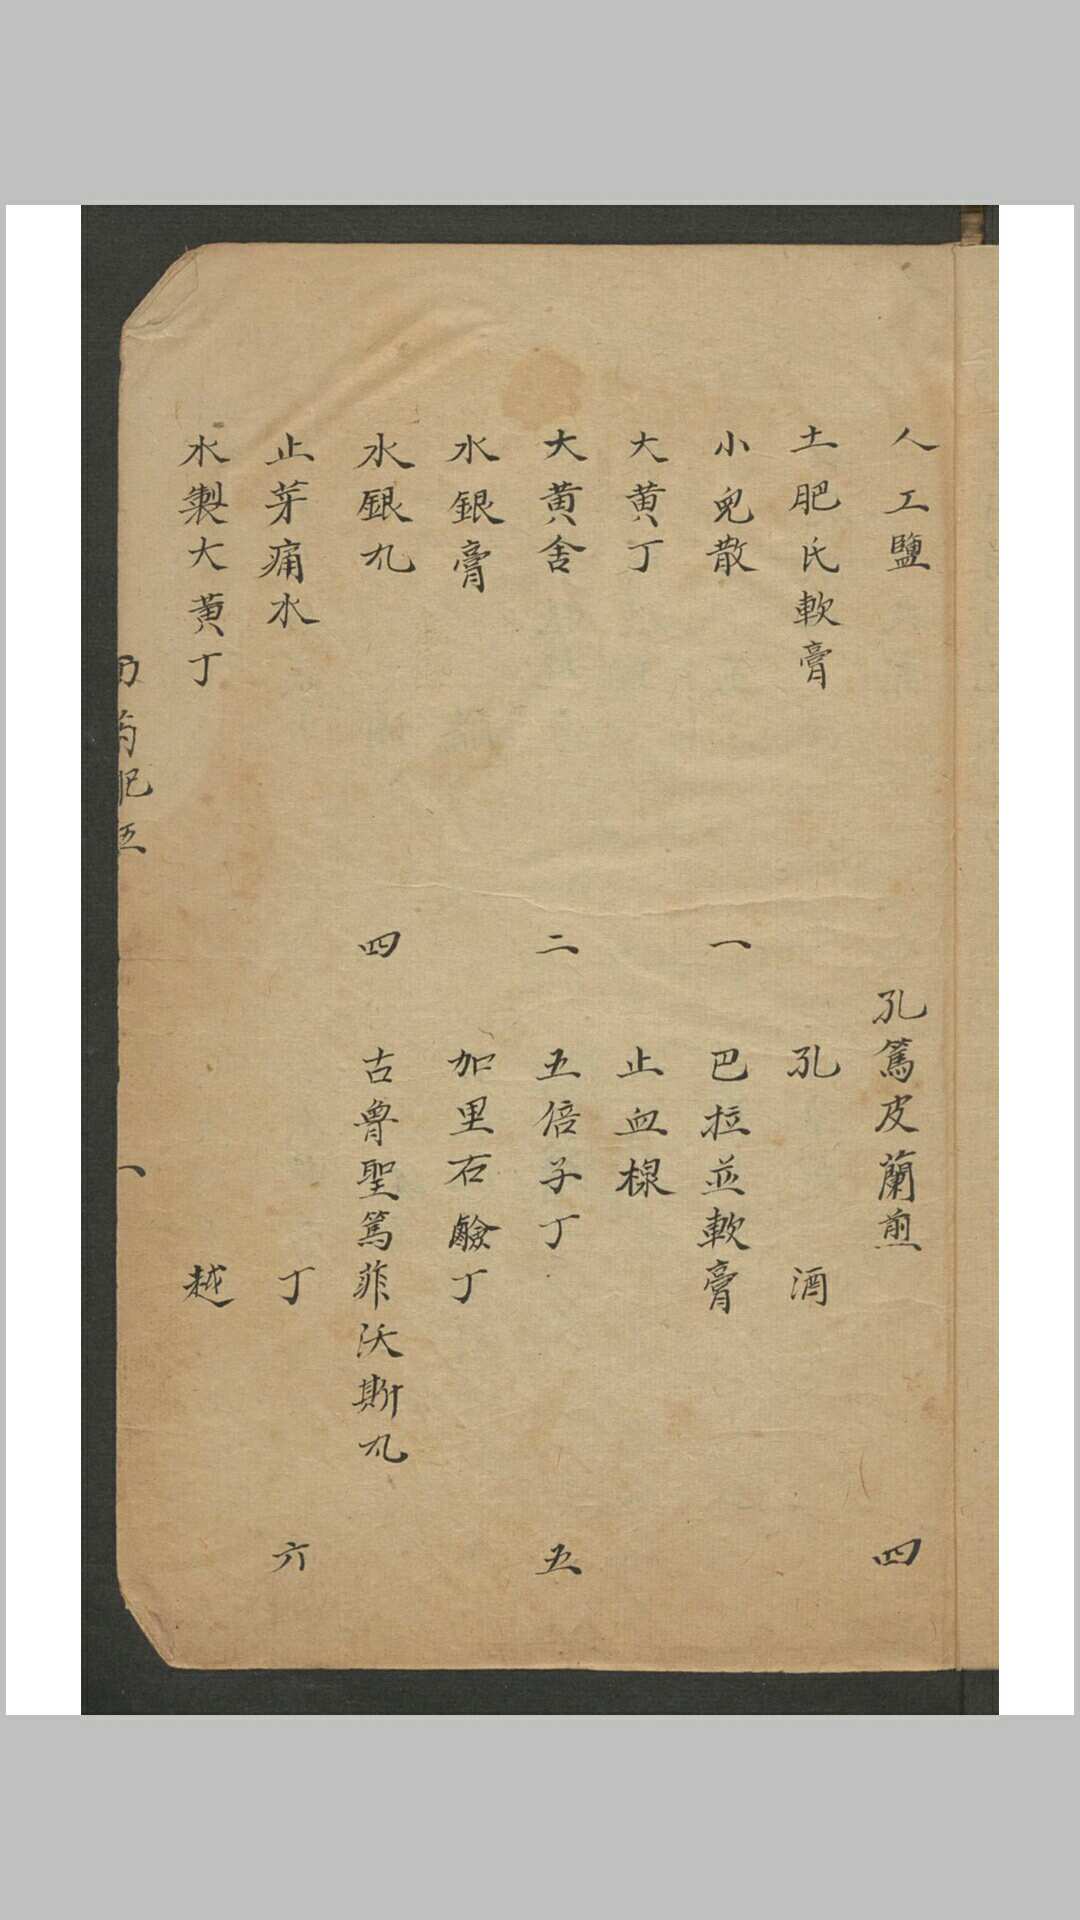 人工鹽 孔篤皮蘭煎 四
土肥氏軟膏 孔 酒
小兒散 一 巴拉並軟膏
大黄丁 止血
大黄舍 二 五倍子丁 五
水銀膏 加里石鹼丁
水銀丸 四 古魯聖篤菲沃斯丸
止芽痛水 丁 六
水製大黄丁 越